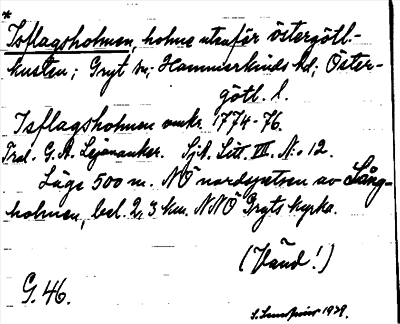 *
Isflagsholmen, holme utanför östergötl-
kusten; Gryt sn; Hammarkinds hd; Öster-
götl. l.
Isflagsholmen omkr. 1774-76.
Tral. G. A. Lejonanker. Sjk. Litt. III. No 12.
Läge 500 m. NÖ nordspetsen av Lång-
holmen, bel. 2,3 km. NNÖ Gryts kyrka.
(Vänd!)
G. 46.
1929.